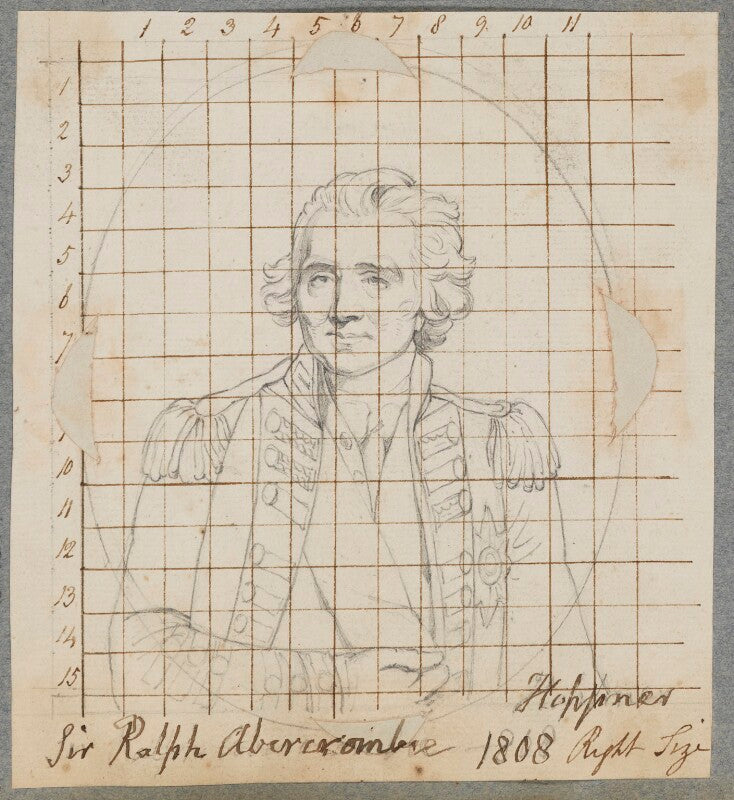 1 2 3 4 5 6 7 8 9 10 11
1
2
3
4
5
6
7
10
11
12
13
14
15
Hoppner
Sir Ralph Abercrombie 1808 Right Size